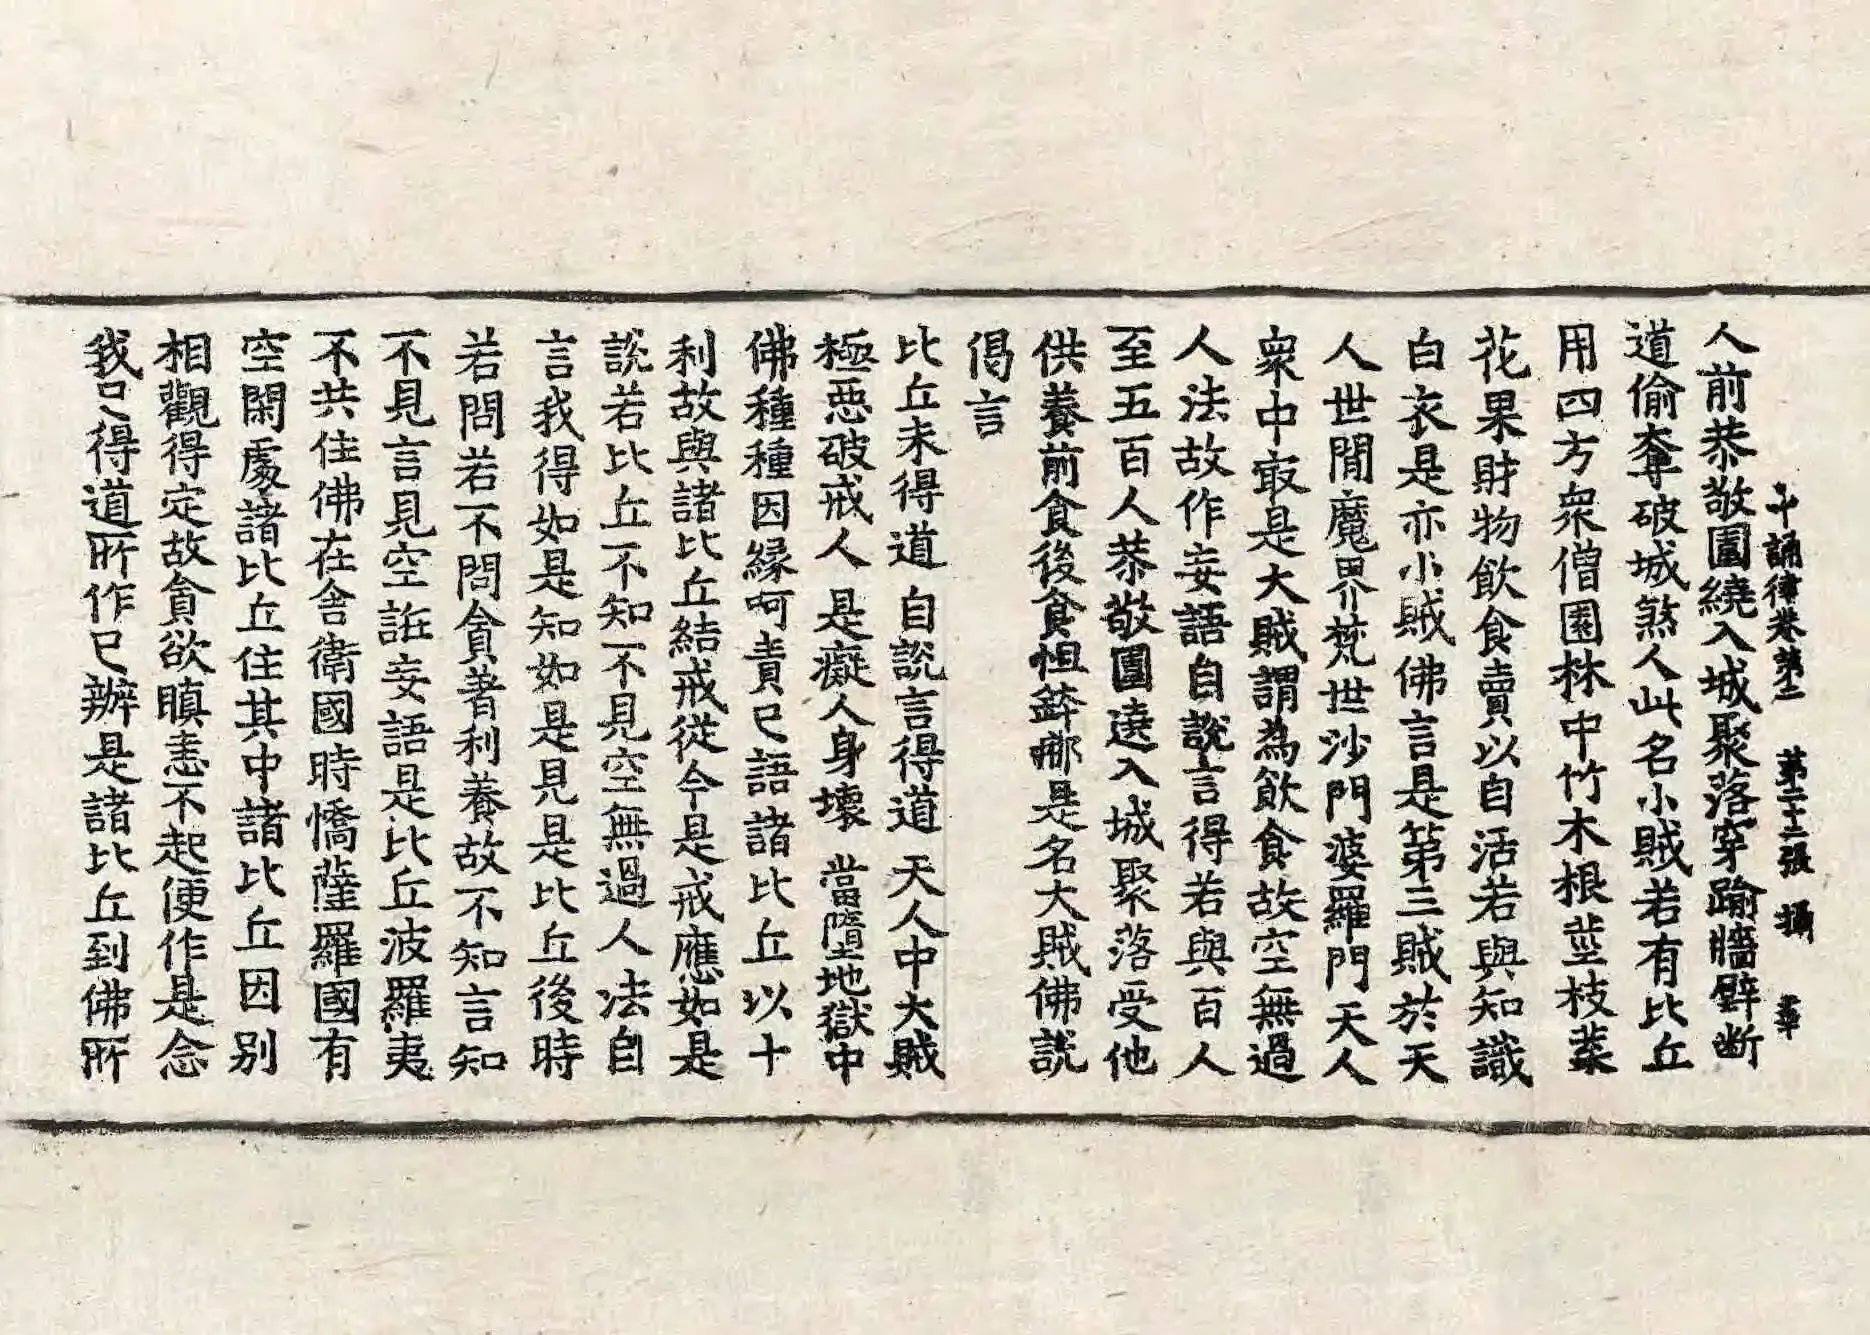 十誦律卷第二　第二十二張　攝　華
人前恭敬圍繞入城聚落穿踰牆壁断
道偷奪破城煞人此名小賊若有比丘
用四方衆僧園林中竹木根莖枝葉
花果財物飲食賣以自活若與知識
白衣是亦小賊佛言是第三賊於天
人世間魔界梵世沙門婆羅門天人
衆中㝡是大賊謂為飲食故空無過
人法故作妄語自說言得若與百人
至五百人恭敬圍遶入城聚落受他
供養前食後食怛鉢那是名大賊佛說
偈言
比丘未得道　自說言得道　天人中大賊
極惡破戒人　是癡人身壞　當墮地獄中
佛種種因緣呵責已語諸比丘以十
利故與諸比丘結戒從今是戒應如是
說若比丘不知不見空無過人法自
言我得如是知如是見是比丘後時
若問若不問貪著利養故不知言知
不見言見空誑妄語是比丘波羅夷
不共住佛在舍衛國時憍薩羅國有
空閑處諸比丘住其中諸比丘因別
相觀得定故貪欲瞋恚不起便作是念
我已得道所作已辦是諸比丘到佛所